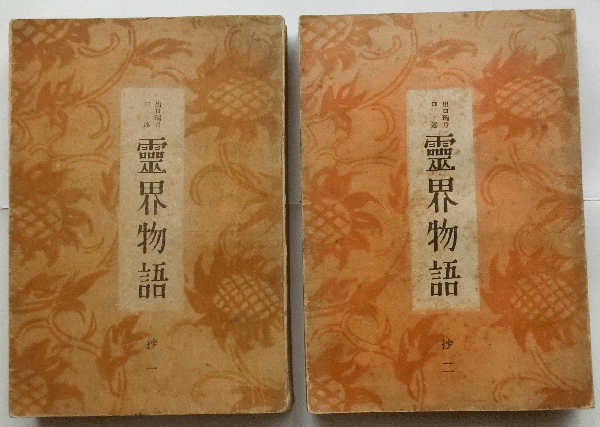 出口瑞月
口述
靈界物語
抄一
出口瑞月
口述
靈界物語
抄二